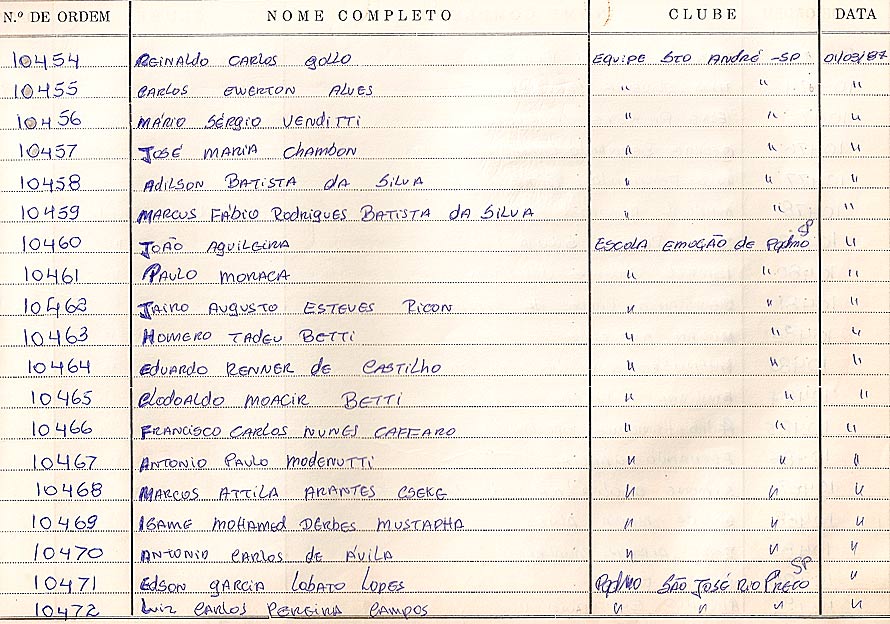 N.º DE ORDEM NOME COMPLETO CLUBE DATA
10454 REINALDO CARLOS GOLLO EQUIPE STO ANDRÉ -SP 01/03/87
10455 CARLOS EWERTON ALVES " " "
10456 MÁRIO SÉRGIO VENDITTI " " "
10457 JOSÉ MARIA CHAMBON " " "
10458 ADILSON BATISTA da SILVA " " "
10459 MARCUS FÁBIO RODRIGUES BATISTA da SILVA " " "
10460 JOÃO AGUILEIRA ESCOLA EMOÇÃO de Pqdmo SP "
10461 PAULO MORACA " " "
10462 JAIRO AUGUSTO ESTEVES RICON " " "
10463 HOMERO TADEU BETTI " " "
10464 EDUARDO RENNER de CASTILHO " " "
10465 CLODOALDO MOACIR BETTI " " "
10466 FRANCISCO CARLOS NUNES CAFFARO " " "
10467 ANTONIO PAULO MODENUTTI " " "
10468 MARCOS ATTILA ARANTES CSEKE " " "
10469 IGAME MOHAMED DERBES MUSTAPHA " " "
10470 ANTONIO CARLOS de ÁVILA " " "
10471 EDSON GARCIA LOBATO LOPES Pqdmo SÃO JOSÉ RIO PRETO SP "
10472 LUIZ CARLOS PEREIRA CAMPOS " " " "